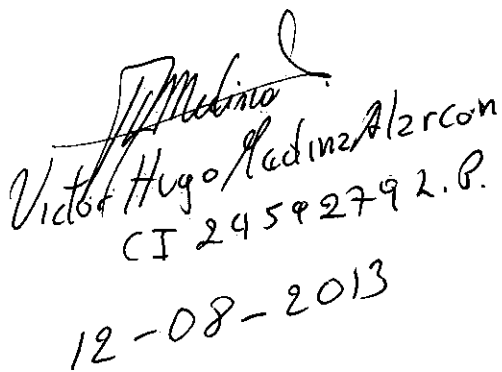 Medina
Victor Hugo Medina Alarcon
CI 2459279 L.P.
12-08-2013